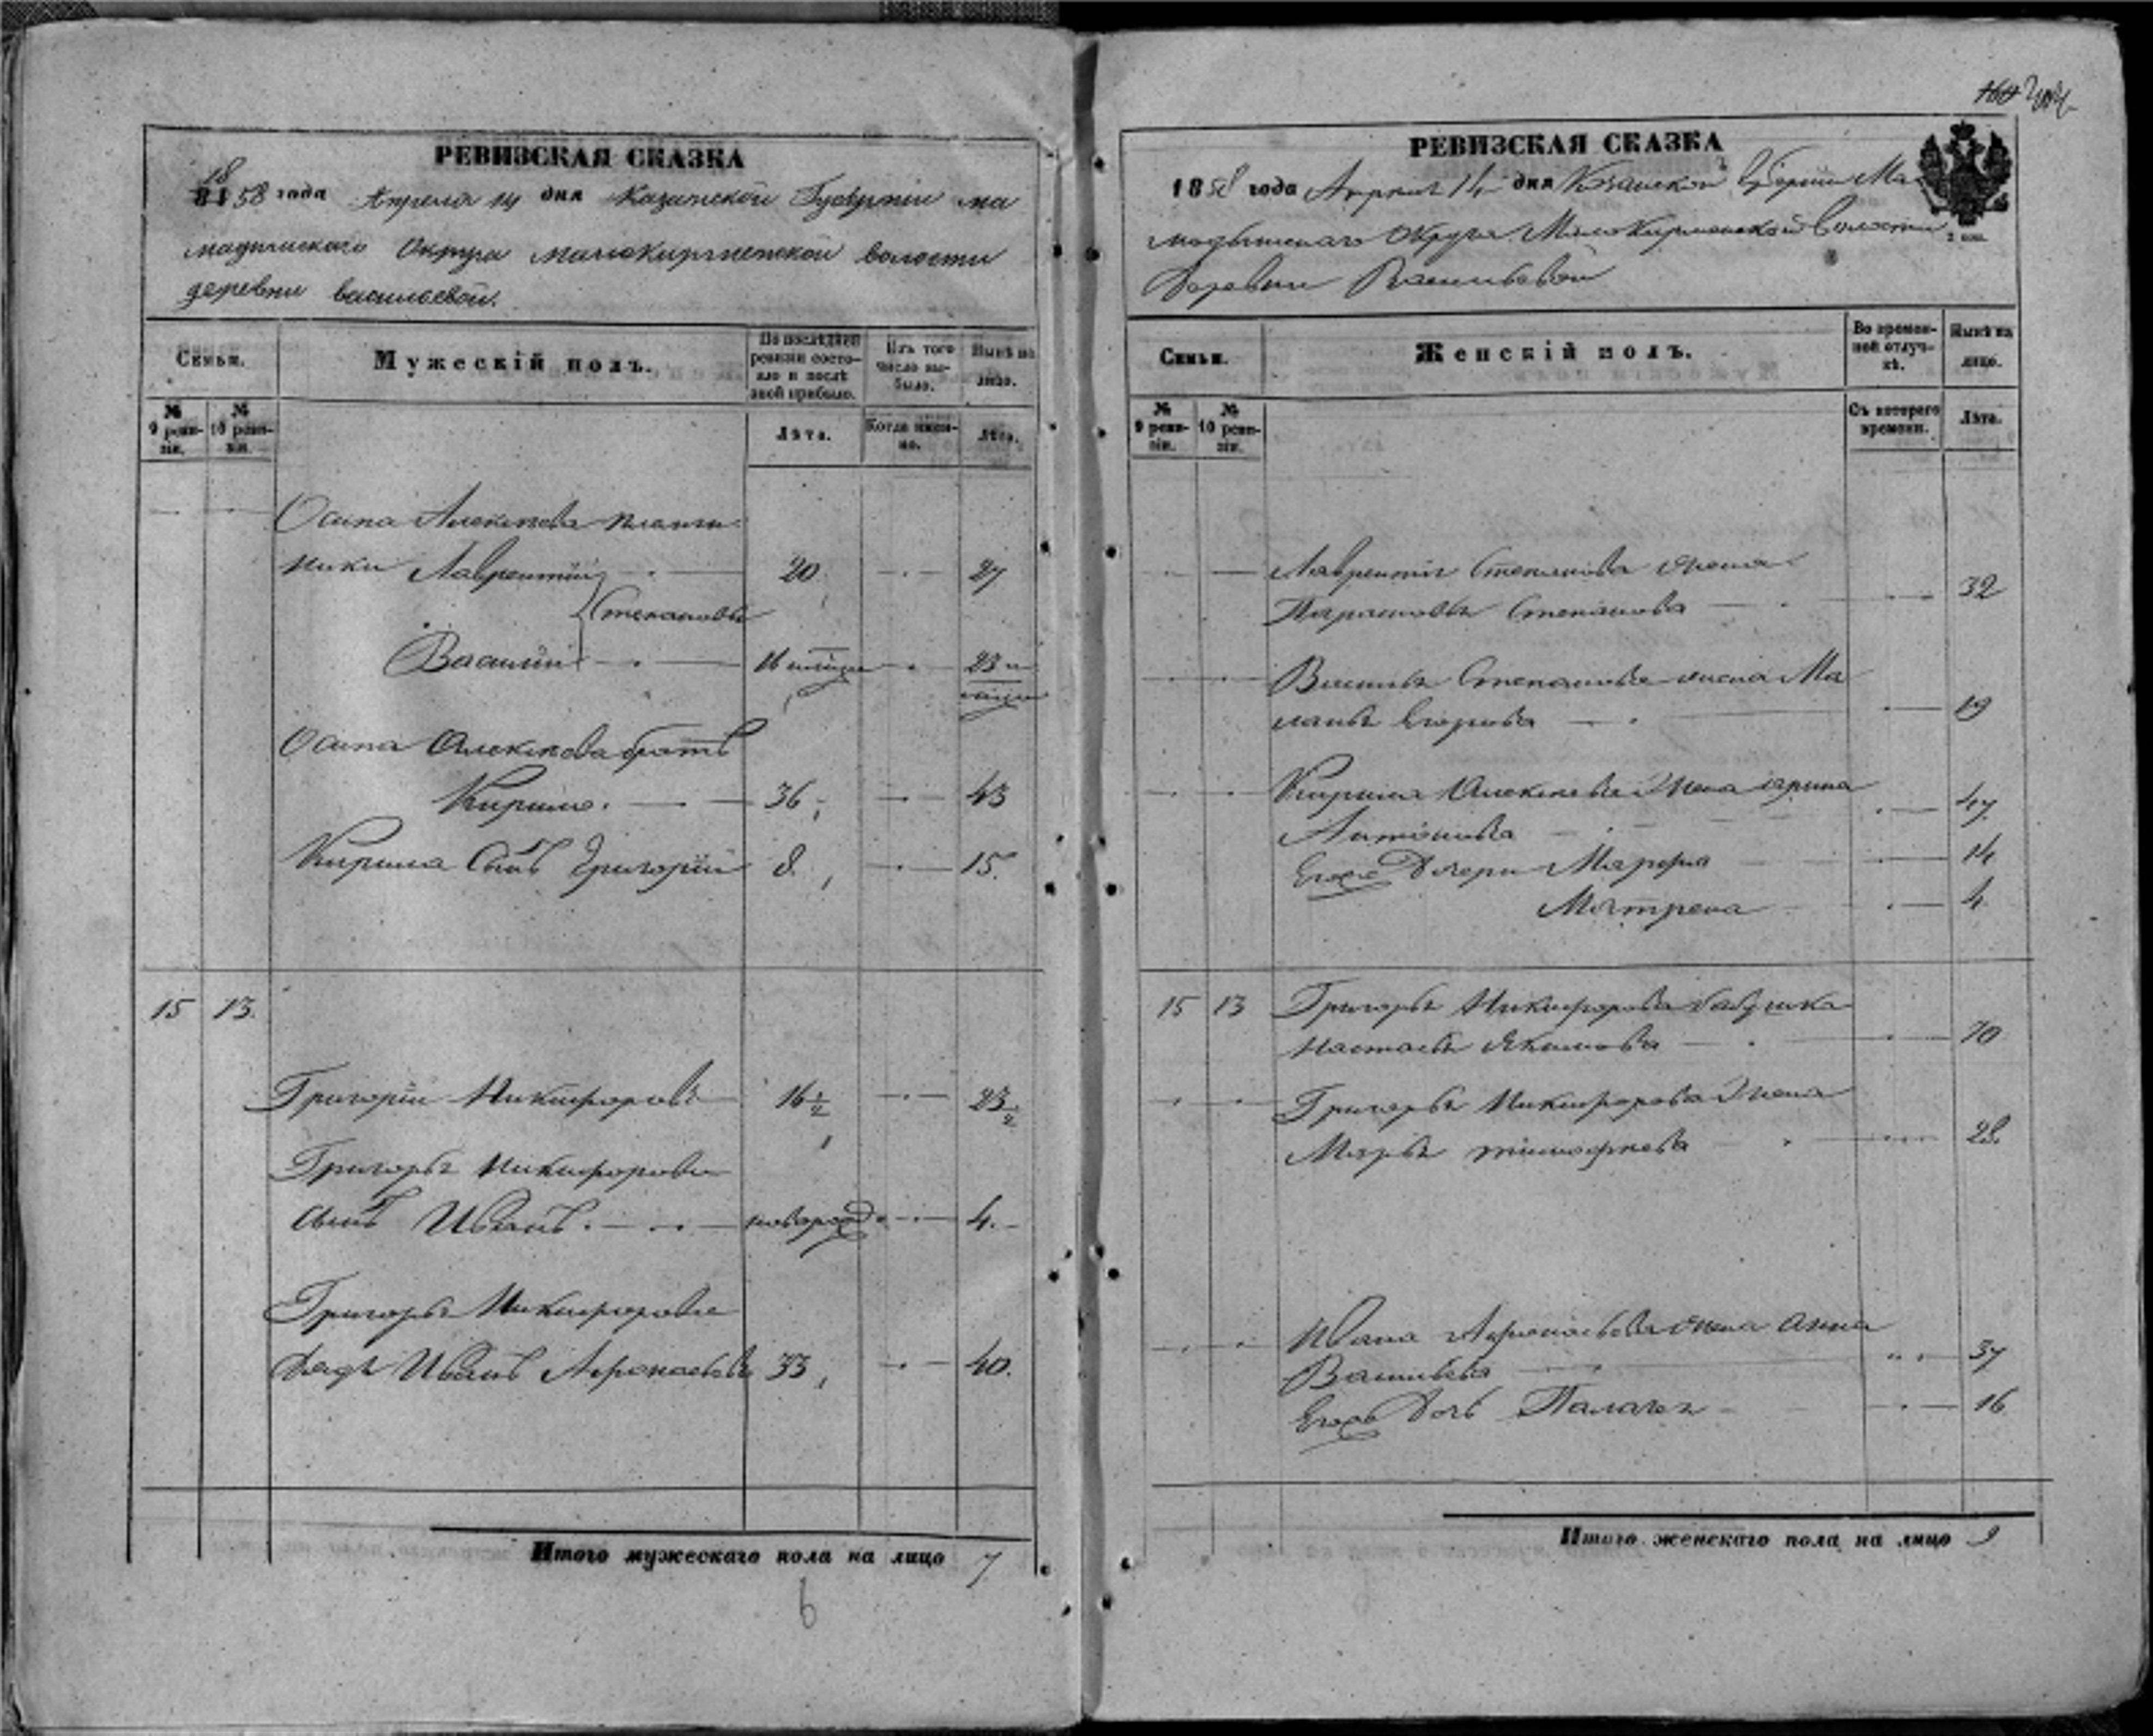 РЕВИЗСКАЯ СКАЗКА
18
58 года Апреля 14 дня Казанской Губернiи ма
мадышскаго Округа малокирменской волости
деревни васильевой.
Семьи.
Мужескiй полъ.
По послѣдней ревизiи состояло и послѣ оной прибыло.
Изъ того число выбыло.
Нынѣ на лицо.
№ 9 ревизiи.
№ 10 ревизiи.
Лѣта.
Когда именно.
Лѣта.
Осипа Алексѣева племян
ники Лаврентiй 20 27
Степановы
Василiй 16 23
Осипа Алексѣева братъ
Кирило. 36 43
Кирила Сынъ Григорiй 8 15.
15 13.
Григорiй Никифоровъ 16 1/2 23 1/2
Григорья Никифорова
сынъ Иванъ. новорожд 4.
Григорья Никифорова
дядя Иванъ Афонасьевъ 33 40.
Итого мужескаго пола на лицо 7
6
160
РЕВИЗСКАЯ СКАЗКА
1858 года Апреля 14 дня Казанской Губернiи Ма
мадышскаго Округа Малокирменской Волости
Деревни Васильевой
2 коп.
Семьи.
Женскiй полъ.
Во временной отлучкѣ.
Нынѣ на лицо.
№ 9 ревизiи.
№ 10 ревизiи.
Съ котораго времени.
Лѣта.
Лаврентiя Степанова жена
Парасковья Степанова 32
Василья Степанова жена Ма
ланья Егорова 19
Кирила Алексѣева Жена ирина
Антонова 47
Егоже Дочери Марфа 14
Матрена 4
15 13 Григорья Никифорова бабушка
настасья Якимова 70
Григорья Никифорова Жена
Марья тимофѣева 28
Ивана Афонасьева жена Анна
Васильева 37
Егожъ Дочь Палагея 16
Итого женскаго пола на лицо 9